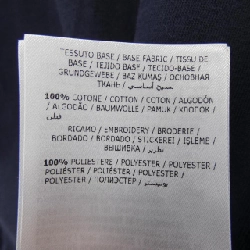 TESSUTO BASE / BASE FABRIC / TISSU DE
BASE / TEJIDO BASE / TECIDO-BASE /
GRUNDGEWEBE / BAZ KUMAŞ / ОСНОВНАЯ
ТКАНЬ / نسيج أساسي
100% COTONE / COTTON / COTON / ALGODÓN
/ ALGODÃO / BAUMWOLLE / PAMUK / ХЛОПОК /
قطن
RICAMO / EMBROIDERY / BRODERIE /
BORDADO / BORDADO / STICKEREI / İŞLEME /
ВЫШИВКА / تطريز
100% POLIESTERE / POLYESTER / POLYESTER /
POLIÉSTER / POLIÉSTER / POLYESTER /
POLYESTER / ПОЛИЭСТЕР / بوليستر